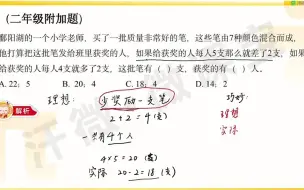 (二年级附加题)
鄱阳湖的一个小学老师，买了一批质量非常好的笔，这些笔由7种颜色混合而成，
他打算把这批笔发给班里获奖的人，如果给获奖的人每人5支那么就差了2支，如果
给获奖的人每人4支就多了2支，这批笔有（ ）支，获奖的有（ ）人。
A. 22；5 B. 20；4 C. 18；4 D. 14；2
解析
理想： 少奖励一支笔 巧妙：
2+2=4(支) 理想
一共有4个人 实际
4×5=20(支)
实际 20-2=18(支)